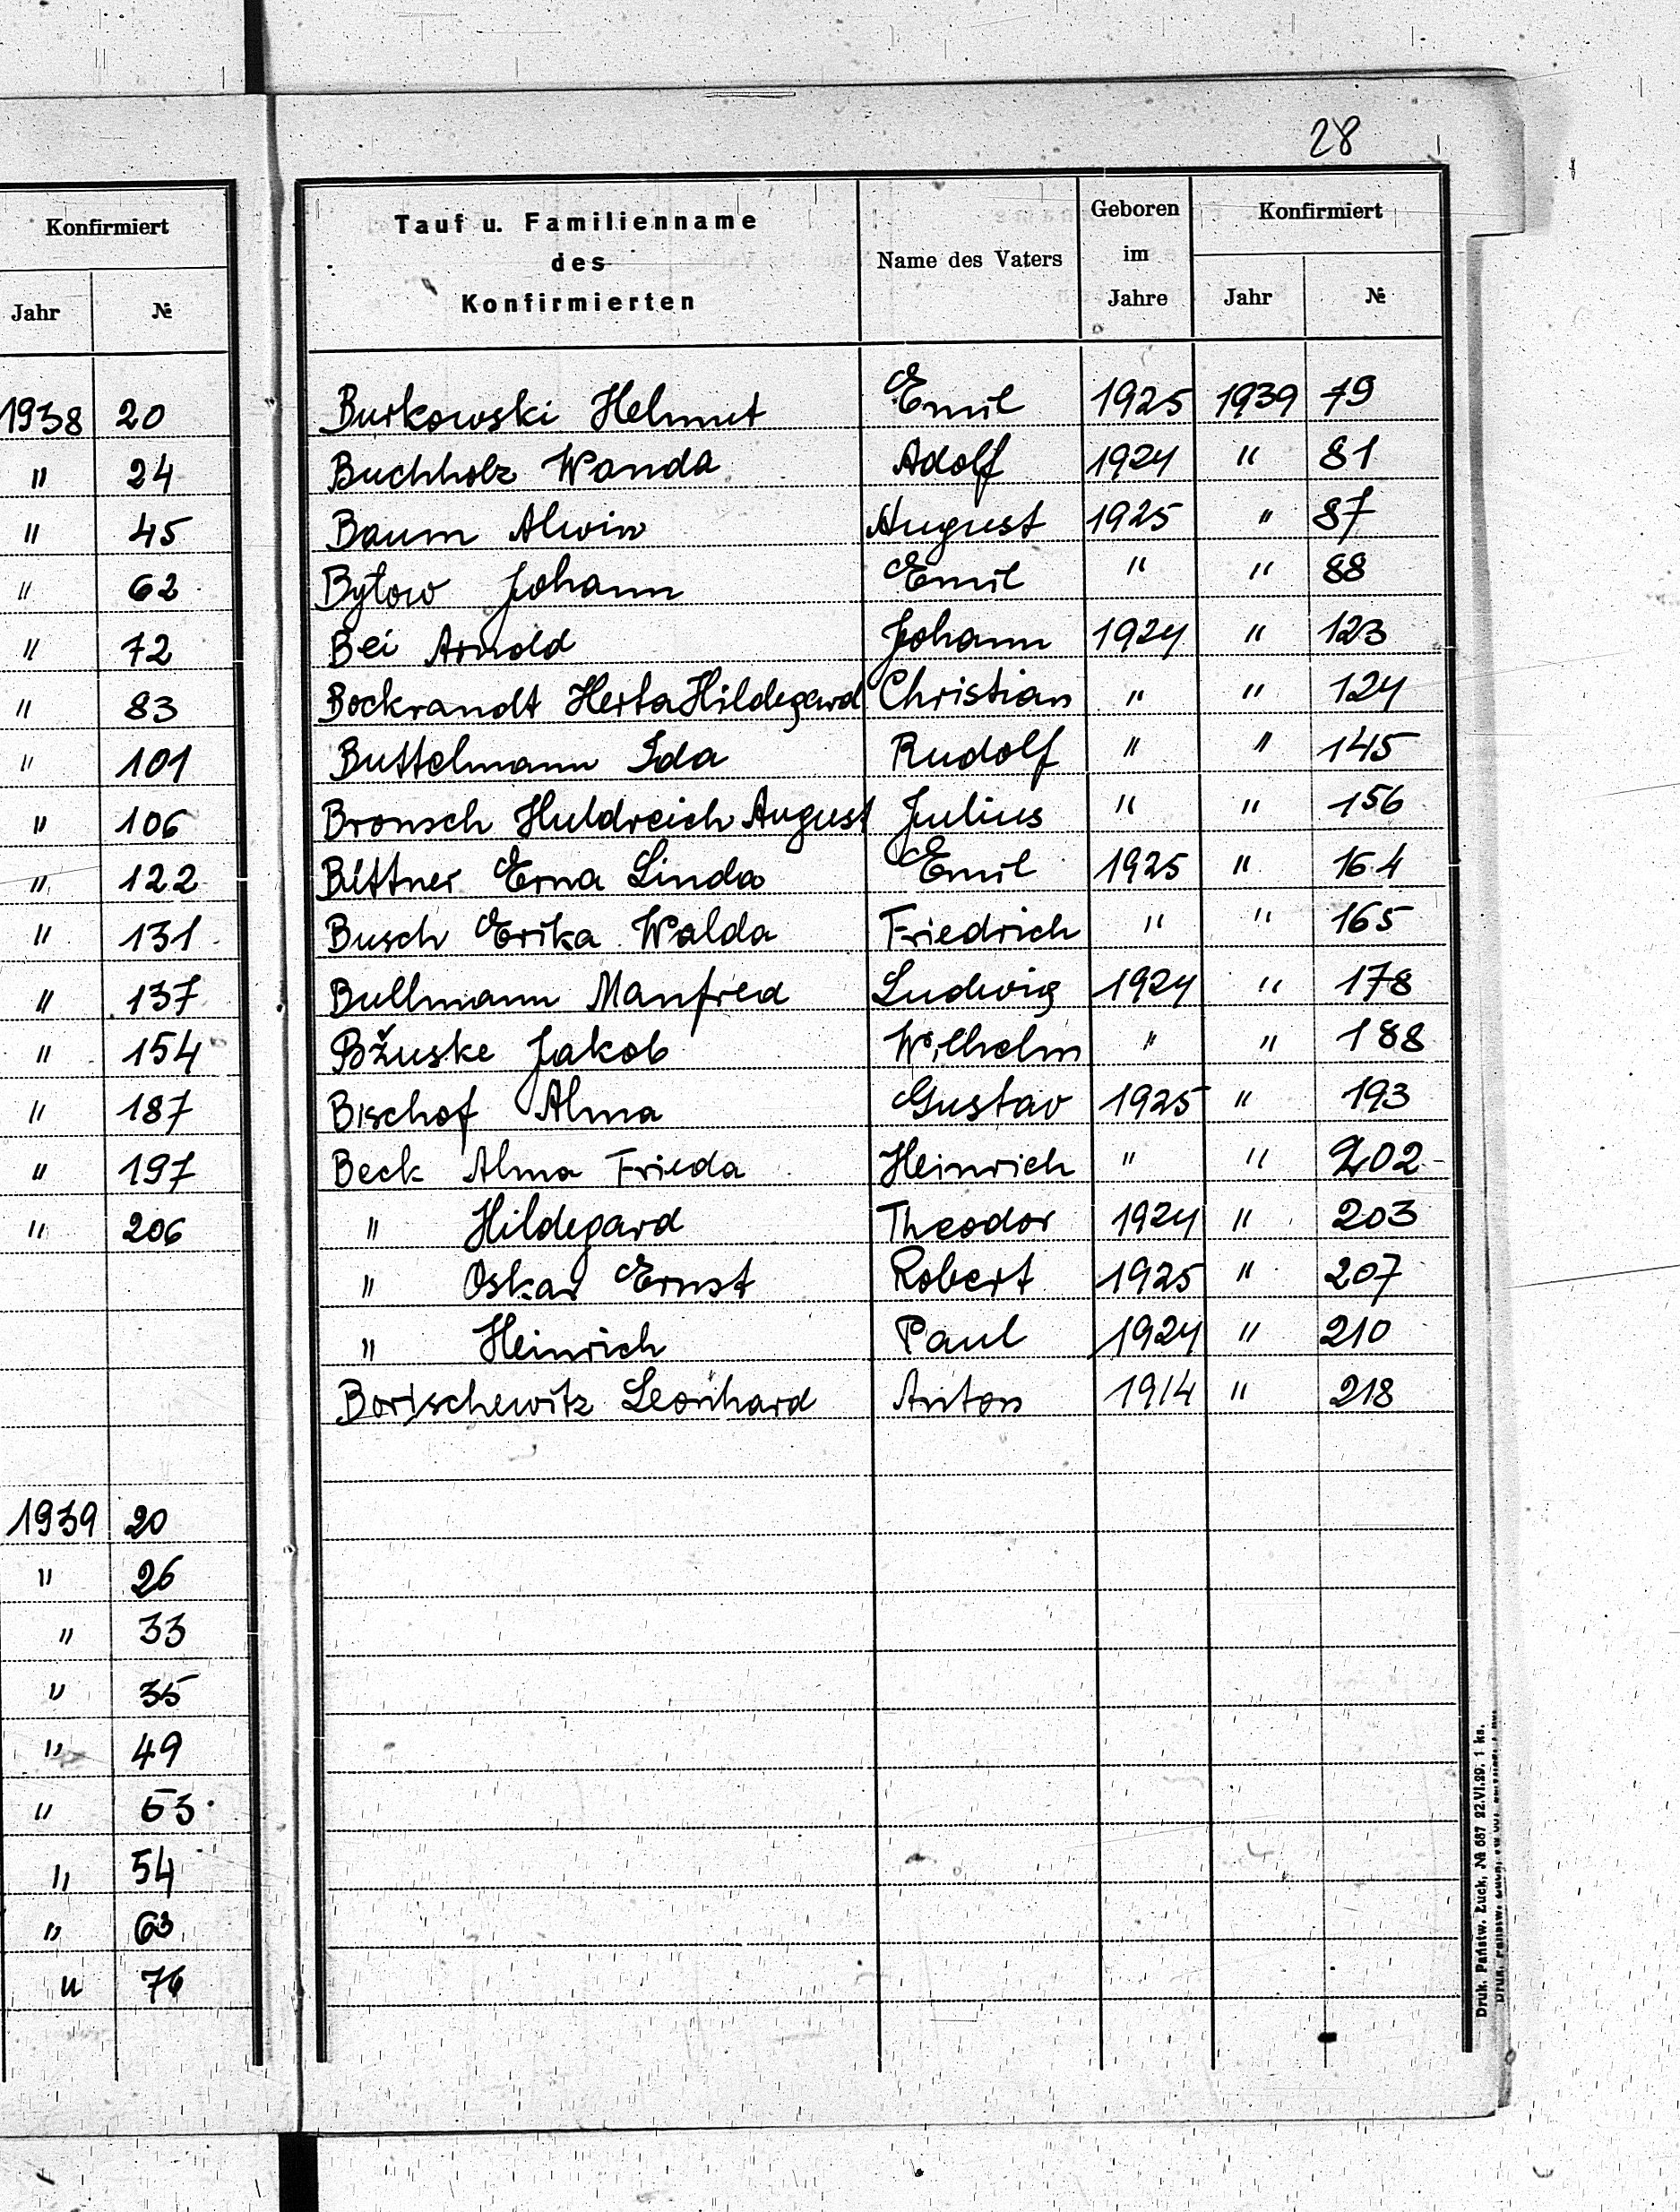 28
Konfirmiert
Jahr №
1938 20
" 24
" 45
" 62
" 72
" 83
" 101
" 106
" 122
" 131
" 137
" 154
" 187
" 197
" 206
1939 20
" 26
" 33
" 35
" 49
" 53
" 54
" 63
" 76
Tauf u. Familienname des Konfirmierten Name des Vaters Geboren im Jahre Konfirmiert
Jahr №
Burkowski Helmut Emil 1925 1939 79
Buchholz Wanda Adolf 1924 " 81
Baum Alwin August 1925 " 87
Bytow Johann Emil " " 88
Bei Arnold Johann 1924 " 123
Bockrandt Herta Hildegard Christian " " 124
Buttelmann Ida Rudolf " " 145
Bronsch Huldreich August Julius " " 156
Bittner Erna Linda Emil 1925 " 164
Busch Erika Walda Friedrich " " 165
Bullmann Manfred Ludwig 1924 " 178
Bžuske Jakob Wilhelm " " 188
Bischof Alma Gustav 1925 " 193
Beck Alma Frieda Heinrich " " 202
" Hildegard Theodor 1924 " 203
" Oskar Ernst Robert 1925 " 207
" Heinrich Paul 1924 " 210
Borischewitz Leonhard Anton 1914 " 218
Druk. Państw. Łuck, № 687 22.VI.29. 1 ks.